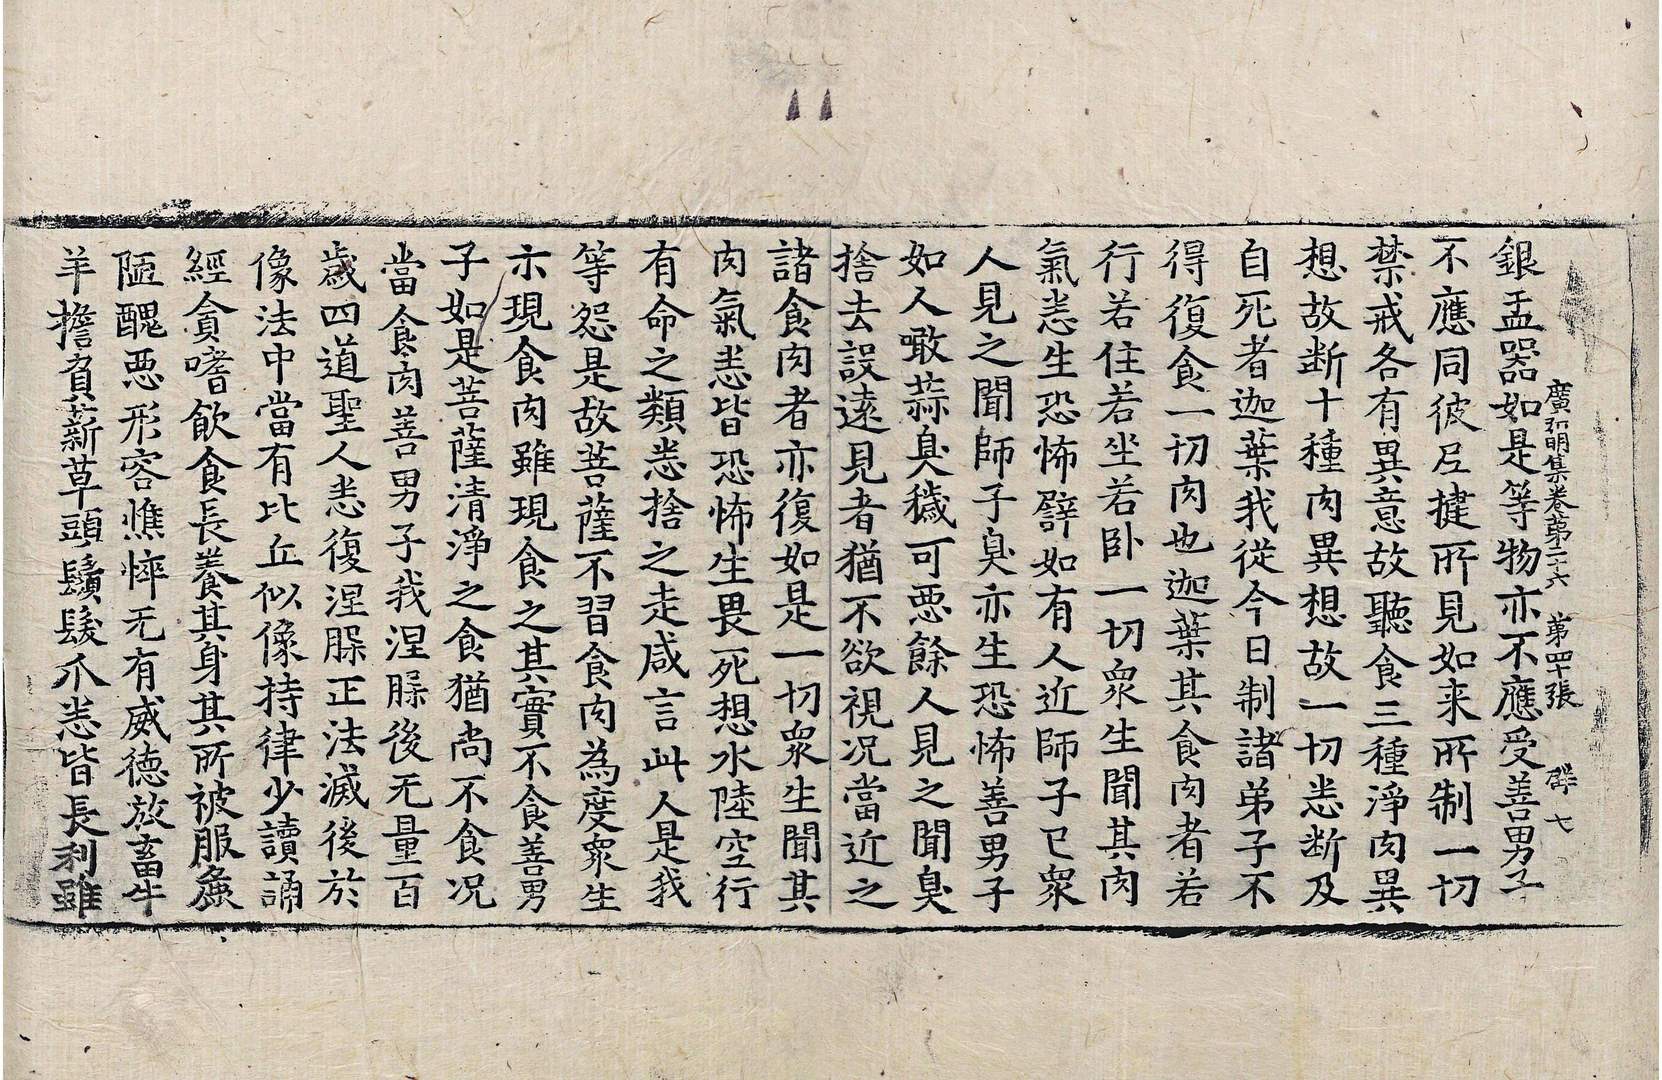 廣弘明集卷第二十六 第四十張 群 七
銀盂器如是等物亦不應受善男子
不應同彼尼揵所見如来所制一切
禁戒各有異意故聽食三種淨肉異
想故断十種肉異想故一切悉断及
自死者迦葉我從今日制諸弟子不
得復食一切肉也迦葉其食肉者若
行若住若坐若卧一切衆生聞其肉
氣悉生恐怖譬如有人近師子已衆
人見之聞師子臭亦生恐怖善男子
如人噉蒜臭穢可悪餘人見之聞臭
捨去設遠見者猶不欲視况當近之
諸食肉者亦復如是一切衆生聞其
肉氣悉皆恐怖生畏死想水陸空行
有命之類悉捨之走咸言此人是我
等怨是故菩薩不習食肉為度衆生
示現食肉雖現食之其實不食善男
子如是菩薩清淨之食猶尚不食况
當食肉善男子我涅槃後无量百
歲四道聖人悉復涅槃正法滅後於
像法中當有比丘似像持律少讀誦
經貪嗜飲食長養其身其所被服麁
陋醜悪形容憔悴无有威德放畜牛
羊擔負薪草頭鬚髮爪悉皆長利雖